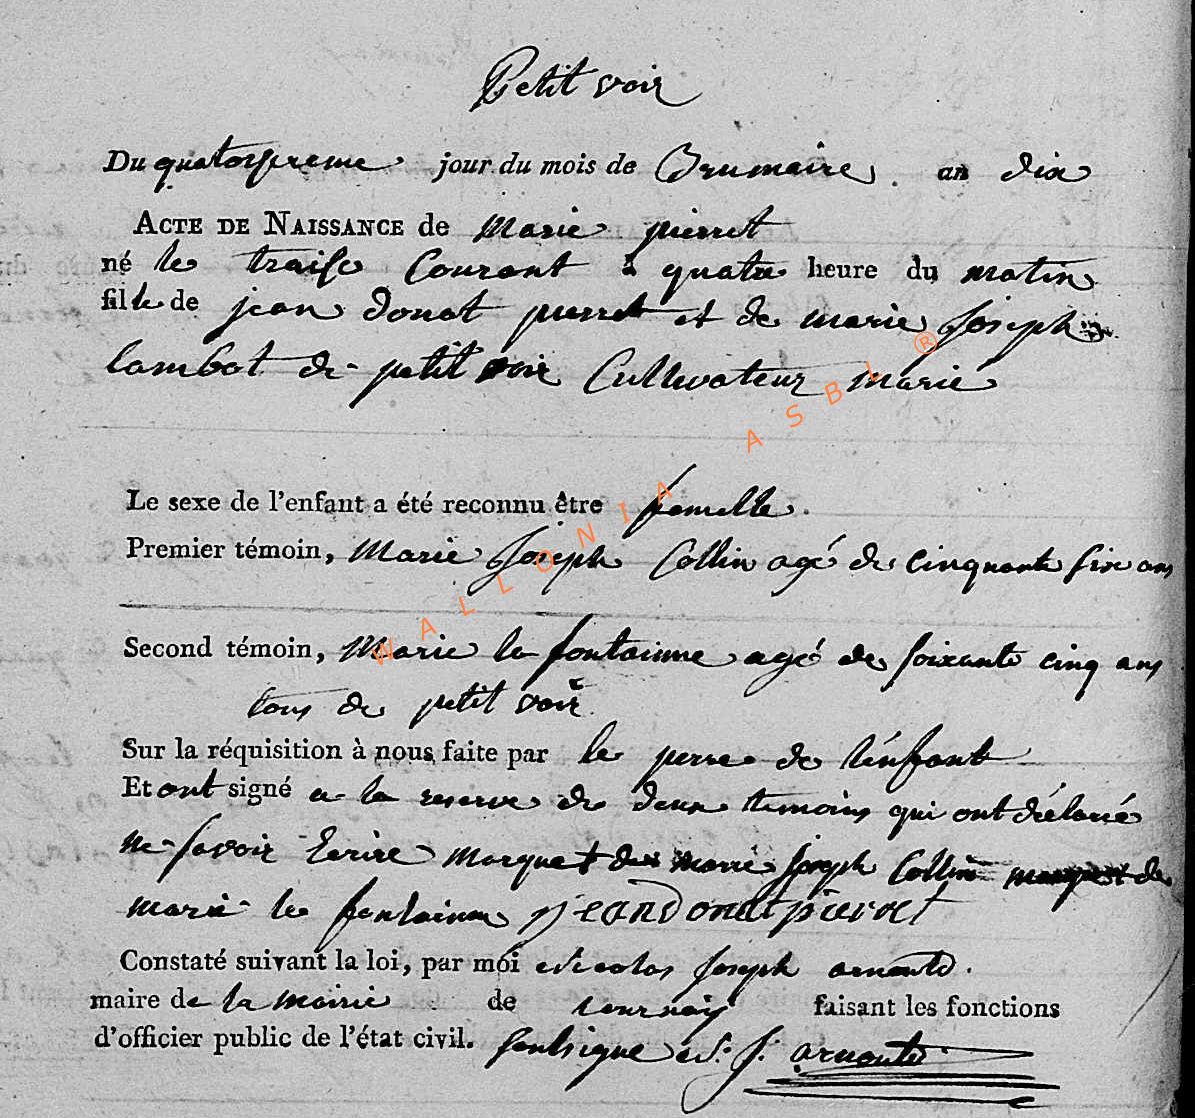 Petit voir
Du quatorzieme jour du mois de Brumaire an dix
ACTE DE NAISSANCE de marie pierret
né le traise Courant à quatre heure du matin
fille de jean donat pierret et de marie joseph
lambot de petit voir Cultivateur marié
Le sexe de l'enfant a été reconnu être femelle.
Premier témoin, Marie joseph Collin agé de cinquante six ans
Second témoin, Marie la fontainne agé de soixante cinq ans
tous de petit voir
Sur la réquisition à nous faite par le perre de l'énfant
Et ont signé a la reserve de deux temoins qui ont délaré
ne savoir Ecrire marque + de marie joseph Collin marque + de
marie le fontainne jean Donat pierret
Constaté suivant la loi, par moi Nicolas joseph arnould.
maire de la mairie de tournay faisant les fonctions
d'officier public de l'état civil. soubsigne N: j: arnould
WALLONIA ASBL ®